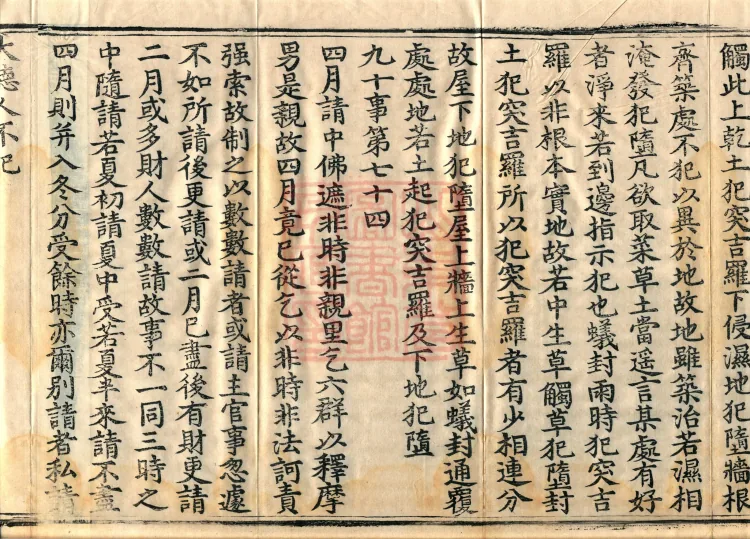 觸此上乾土犯突吉羅下侵濕地犯墮牆根
齊築處不犯以異於地故地雖築治若濕相
淹發犯墮凡欲取菜草土當遥言某處有好
者淨來若到邊指示犯也蟻封雨時犯突吉
羅以非根本實地故若中生草觸草犯墮封
土犯突吉羅所以犯突吉羅者有少相連分
故屋下地犯墮屋上牆上生草如蟻封通覆
處處地若土起犯突吉羅及下地犯墮
九十事第七十四
四月請中佛遮非時非親里乞六群以釋摩
男是親故四月竟已從乞以非時非法訶責
强索故制之以數數請者或請主官事怱遽
不如所請後更請或二月已盡後有財更請
二月或多財人數數請故事不一同三時之
中隨請若夏初請夏中受若夏半來請不盡
四月則并入冬分受餘時亦爾別請者私請
大德人不犯